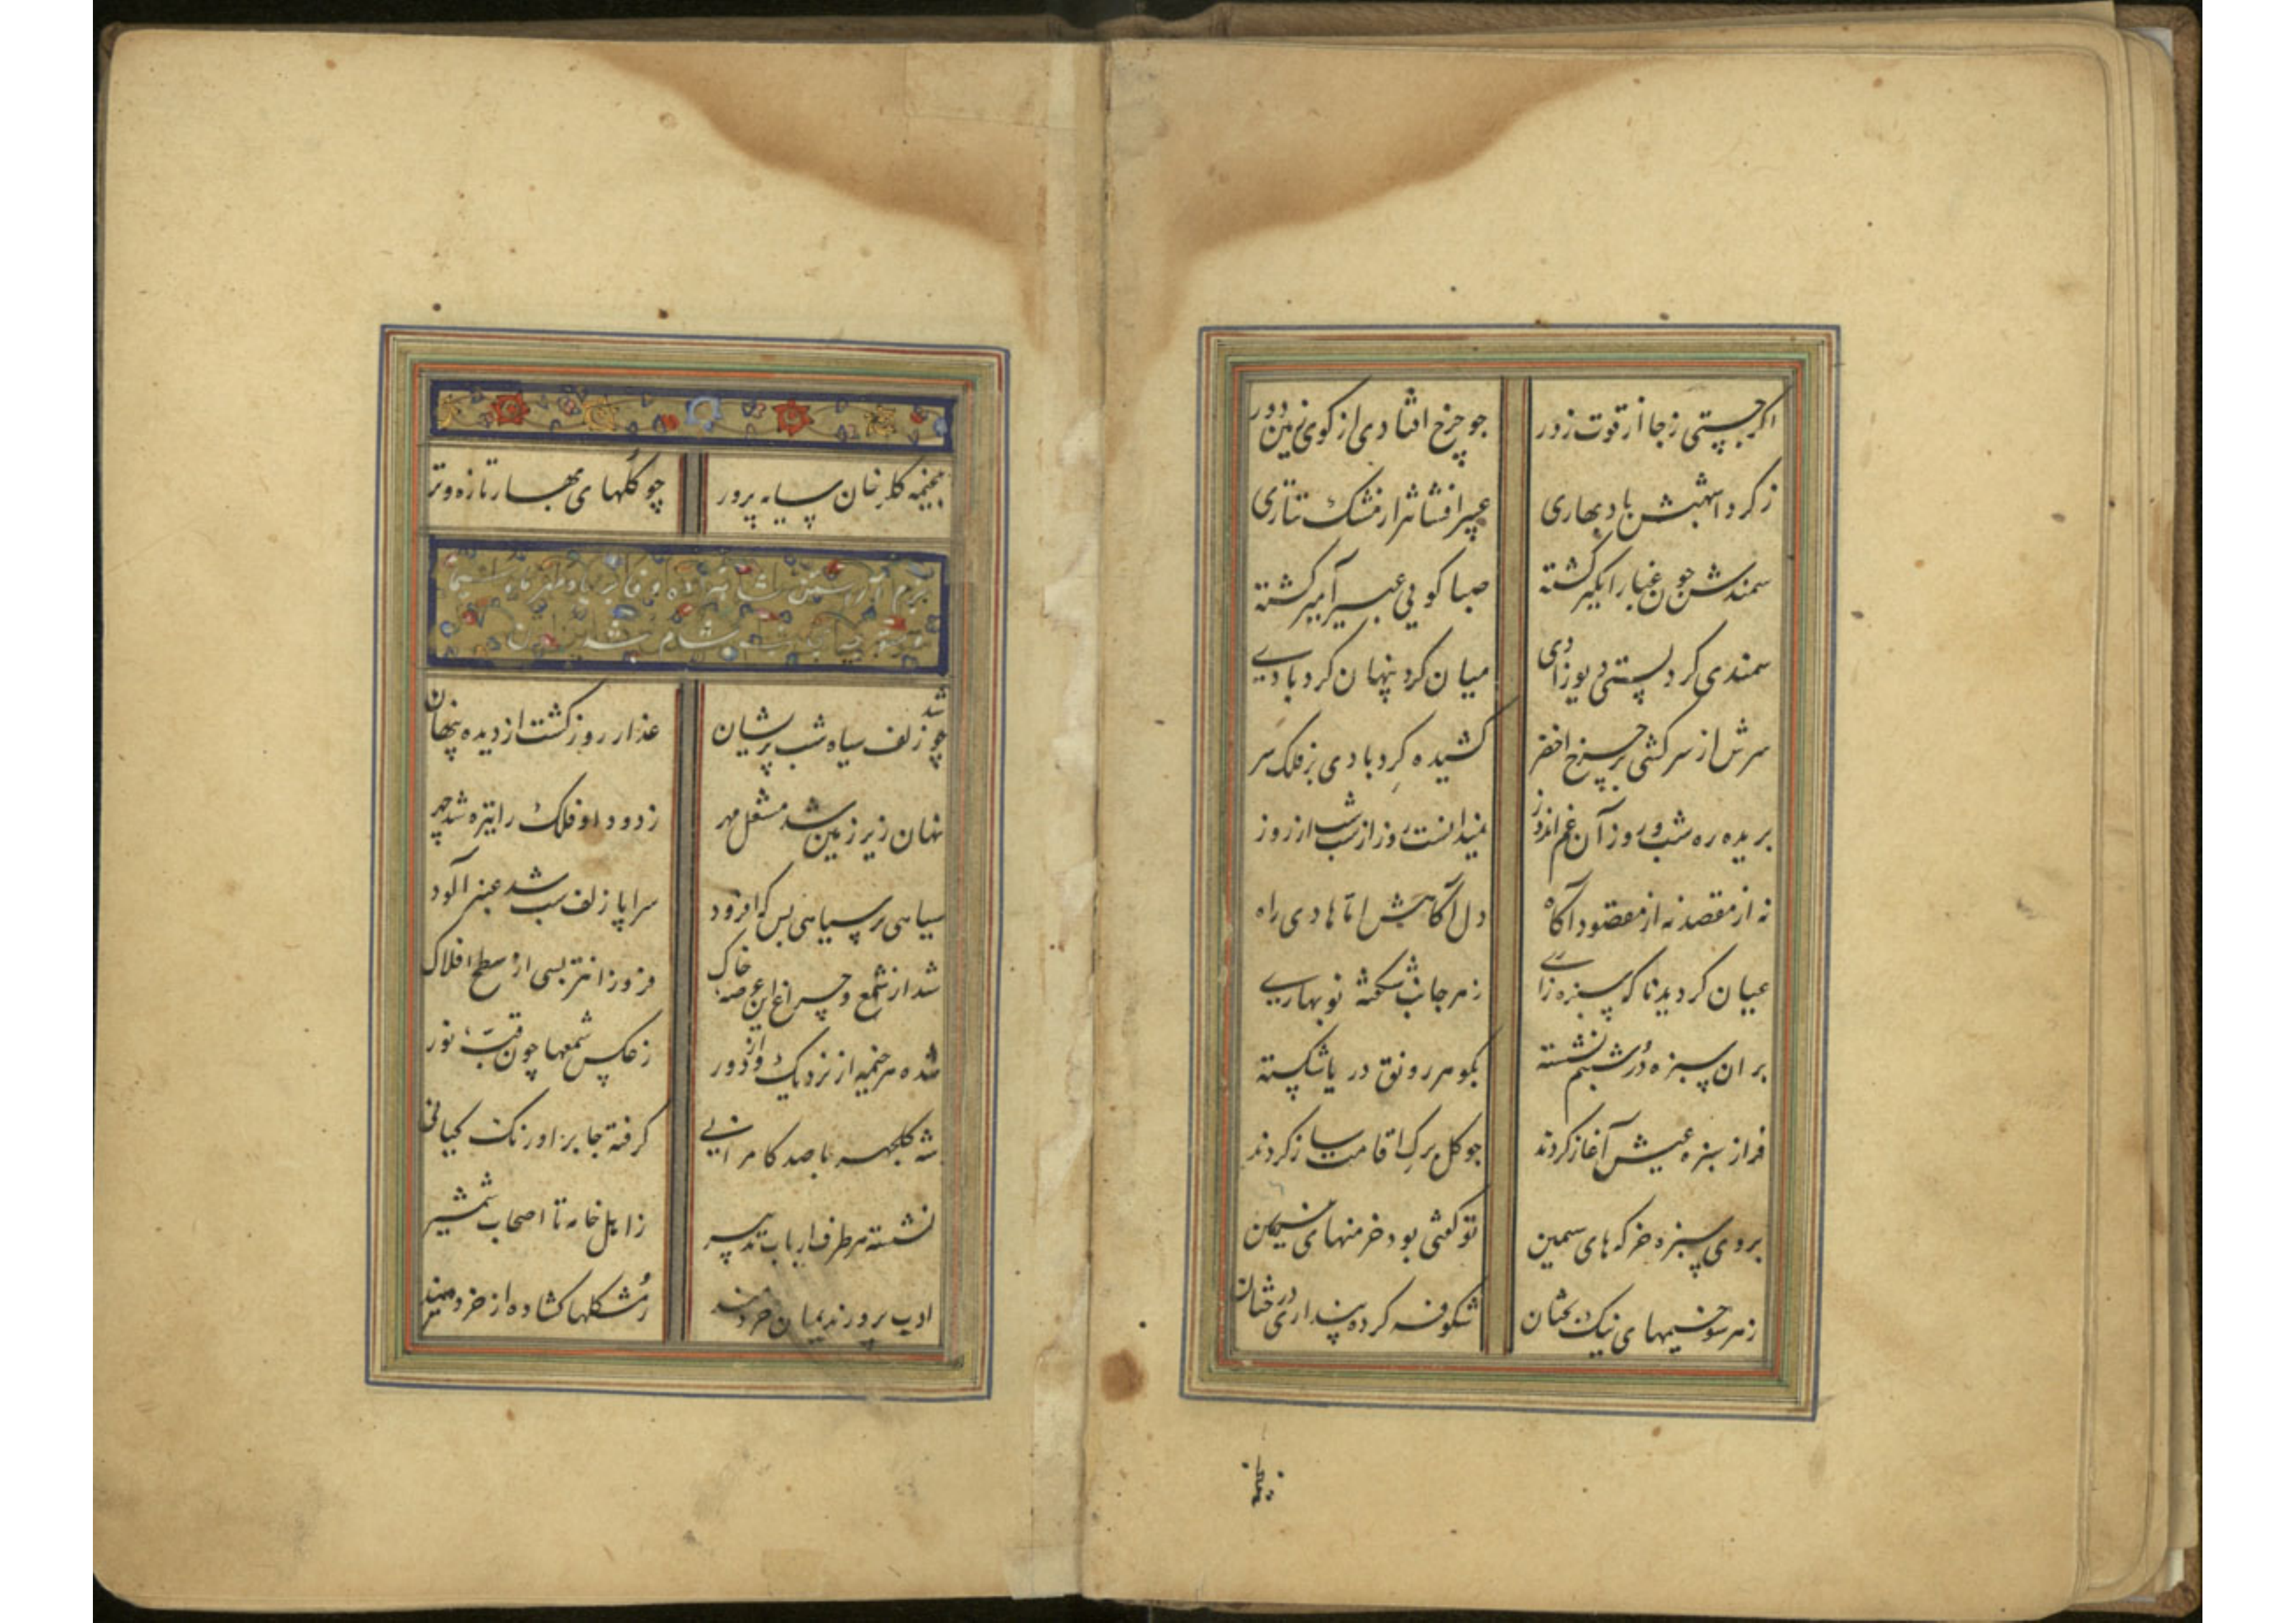 اکر جستی ز جا از قوت زور جو چرخ افتادی از کوی زمین دور
ز کرد اشهبش باد بهاری عبیر افشانتر از مشک تتاری
سمندش چون غبار انکیز کشته صبا کویی عبیر آمیز کشته
سمندی کرد پستی دیوزادی میان کرد پنهان کردبادی
سرش از سرکشی بر چرخ اخضر کشیده کردبادی بر فلک سر
بریده ره شب و روز آن غم اندوز نمیدانست روز از شب شب از روز
نه از مقصد نه از مقصود آکاه دل آکاهیش اما هادی راه
عیان کردید ناکه سبزه زاری ز هر جانب شکفته نوبهاری
بر ان سبزه در شبنم نشسته بکوهر رونق دریا شکسته
فراز سبزه عیش آغاز کردند جو کل برک اقامت ساز کردند
بروی سبزه خرکه های سیمین تو کفتی بود خرمنهای نسرین
ز هر سو خیمهای نیک بختان شکوفه کرده پنداری درختان
بخیمه کلرخان سایه پرور چو کلهای بهار تازه و تر
بزم آراستن شاهزاده
شام شدن
چو شد زلف سیاه شب پریشان عذار روز کشت از دیده پنهان
نهان زیر زمین شد مشعل مهر ز دود او فلک را تیره شد چهر
سیاهی بر سیاهی بس که افزود سراپا زلف شب شد عنبر آلود
شد از شمع و چراغ این عرصه خاک فروزانتر بسی از سطح افلاک
شده هر خیمه از نزدیک و از دور ز عکس شمعها چون قبه نور
شه کلچهره با صد کامرانی کرفته جا بر اورنک کیانی
نشسته هر طرف ارباب تدبیر ز اهل خامه تا اصحاب شمشیر
ادب پرور ندیمان خردمند ز مشکلها کشاده از خرد بند
بخیمه